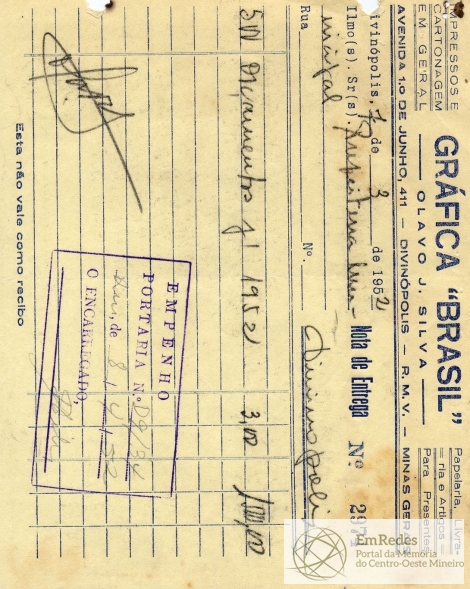 IMPRESSOS E
CARTONAGEM
EM GERAL
GRÁFICA "BRASIL"
— OLAVO J. SILVA —
Papelaria, Livra-
— ria e Artigos —
Para Presentes
AVENIDA 1.o DE JUNHO, 411 — DIVINÓPOLIS — R. M. V. — MINAS GERAIS
Divinópolis, 7 de 3 de 1952 Nota de Entrega Nº
Ilmo(s). Sr(s). Prefeitura Mu-
nicipal
Rua Nº. Divinopolis
500 Orçamentos p/ 1952 3,00
EMPENHO
PORTARIA N.
de 8/4/52
O ENCARREGADO,
Esta não vale como recibo
EmRedes
Portal da Memória
do Centro-Oeste Mineiro